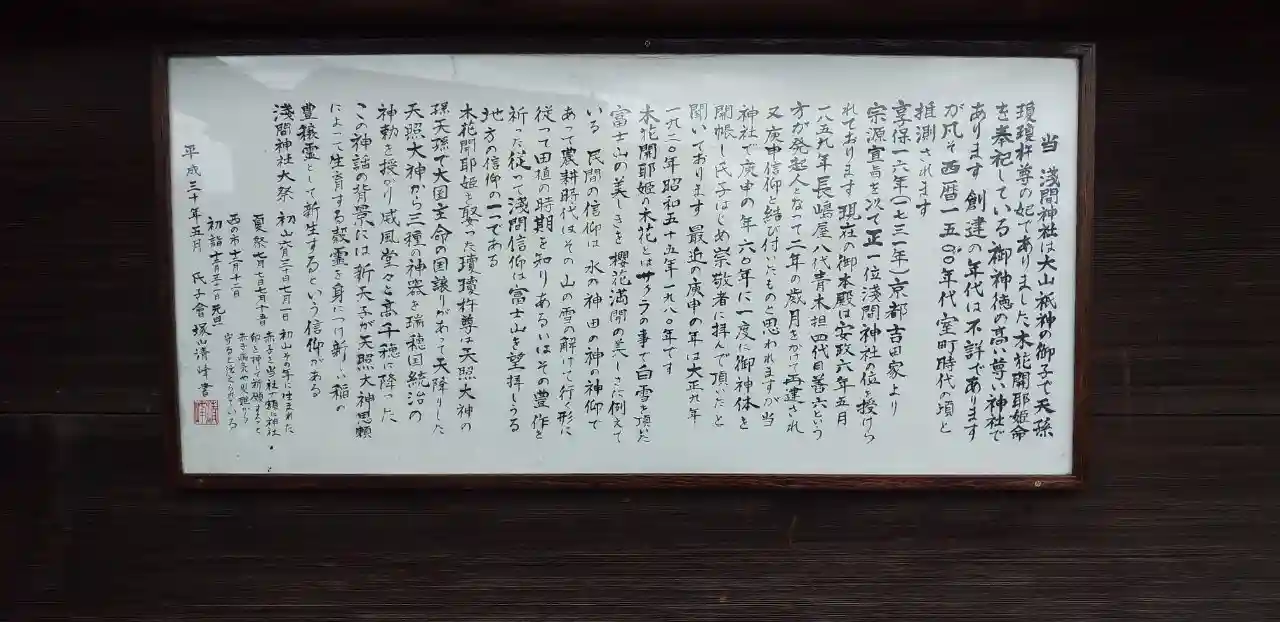 当 浅間神社は大山祇神の御子で天孫
瓊瓊杵尊の妃でありました木花開耶姫命
を奉祀している御神徳の高い尊い神社で
あります 創建の年代は不詳であります
が凡そ西暦一五〇〇年代室町時代の頃と
推測されます
享保一六年(一七三一年)京都吉田家より
宗源宣旨を次て正一位浅間神社の位を授けら
れております 現在の御本殿は安政六年五月
一八五九年長嶋屋八代青木担四代目善六という
方が発起人となって二年の歳月をかけて再建され
又庚申信仰と結び付いたものと思われますが当
神社で庚申の年六〇年に一度に御神体を
開帳し氏子はじめ崇敬者に拝んで頂いたと
聞いております 最近の庚申の年は大正九年
一九二〇年昭和五十五年一九八〇年です
木花開耶姫の木花とはサクラの事で白雪を頂いた
富士山の美しさを櫻花満開の美しさに例えて
いる 民間の信仰は水の神田の神の神仰で
あって農耕時代はその山の雪の解けて行く形に
従って田植の時期を知りあるいはその豊作を
祈った従って浅間信仰は富士山を望拝しうる
地方の信仰の一つである
木花開耶姫を娶った瓊瓊杵尊は天照大神の
孫天孫で大国主命の国譲りがあって天降りした
天照大神から三種の神器を瑞穂国統治の
神勅を授かり威風堂々と高千穂に降った
この神話の背景には新天子が天照大神思頼
によって生育する穀霊を身につけ新しい稲の
豊穣霊として新生するという信仰がある
浅間神社大祭 初山六月三十日七月一日
夏祭七月七日七月十五日
酉の市十二月十二日
初詣十二月三十一日元旦
初山その年に生まれた
赤子を当社十額に神社
印を押して祈願すると
赤子病気や災難から
守ると伝えられている
平成三十年五月 氏子會 塚山清 書